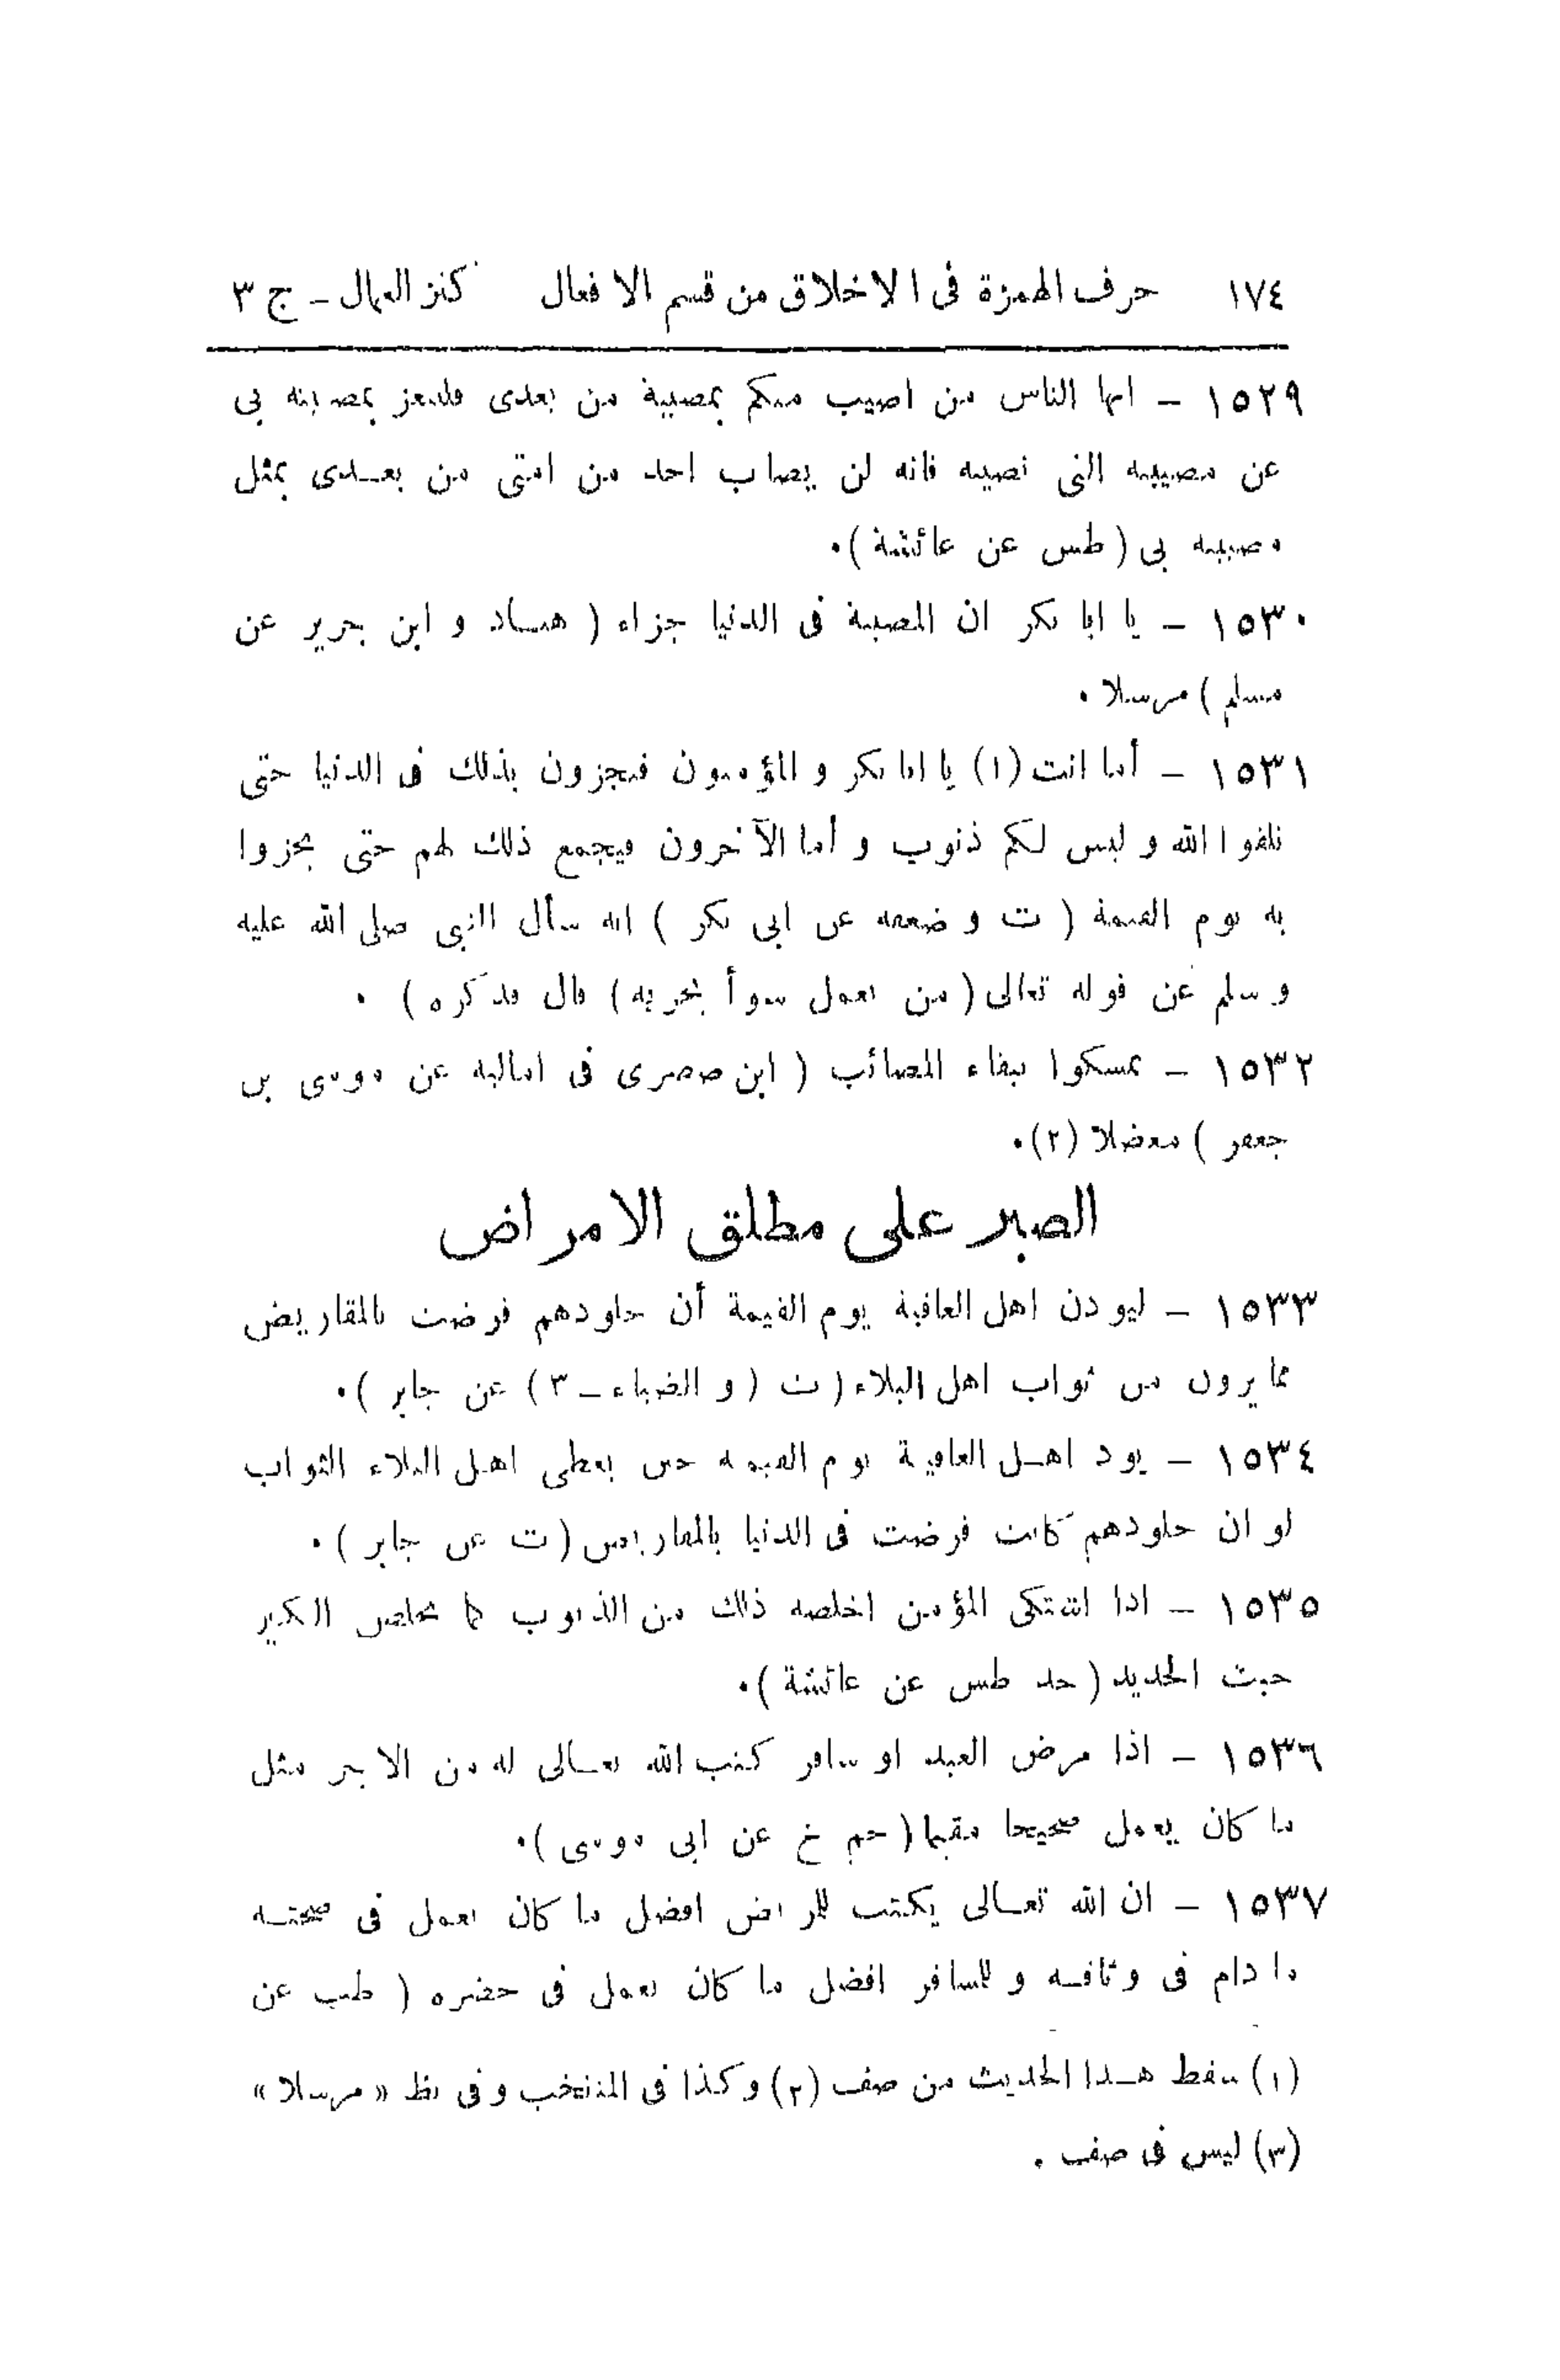 ١٧٤ حرف الهمزة فى الاخلاق من قسم الافعال كنز العمال - ج ٣
١٥٢٩ - ايها الناس من اصيب منكم بمصيبة من بعدى فليتعز بمصيبته بى
عن مصيبته التى تصيبه فانه لن يصاب احد من امتى من بعدى بمثل
مصيبته بى (طس عن عائشة).
١٥٣٠ - يا ابا بكر ان المصيبة فى الدنيا جزاء (هناد و ابن جرير عن
مسلم) مرسلا.
١٥٣١ - أما انت (١) يا ابا بكر و المؤمنون فيجزون بذلك فى الدنيا حتى
تلقوا الله و ليس لكم ذنوب و أما الآخرون فيجمع ذلك لهم حتى يجزوا
به يوم القيمة (ت و ضعفه عن ابى بكر) انه سأل النبى صلى الله عليه
و سلم عن قوله تعالى (من يعمل سوأ يجز به) قال فذكره).
١٥٣٢ - تمسكوا ببقاء المصائب (ابن صصرى فى اماليه عن موسى بن
جعفر) معضلا (٢).
الصبر على مطلق الامراض
١٥٣٣ - ليودن اهل العافية يوم القيمة أن جلودهم قرضت بالمقاريض
مما يرون من ثواب اهل البلاء (ت (و الضياء - ٣) عن جابر).
١٥٣٤ - يود اهل العافية يوم القيمة حين يعطى اهل البلاء الثواب
لو ان جلودهم كانت قرضت فى الدنيا بالمقاريض (ت عن جابر).
١٥٣٥ - اذا اشتكى المؤمن اخلصه ذلك من الذنوب كما يخلص الكير
خبث الحديد (خد طس عن عائشة).
١٥٣٦ - اذا مرض العبد او سافر كتب الله تعالى له من الاجر مثل
ما كان يعمل صحيحا مقيما (حم خ عن ابى موسى).
١٥٣٧ - ان الله تعالى يكتب للمريض افضل ما كان يعمل فى صحته
ما دام فى وثاقه و للمسافر افضل ما كان يعمل فى حضره (طب عن
(١) سقط هذا الحديث من صف (٢) و كذا فى المنتخب و فى نظ «مرسلا»
(٣) ليس فى صف.